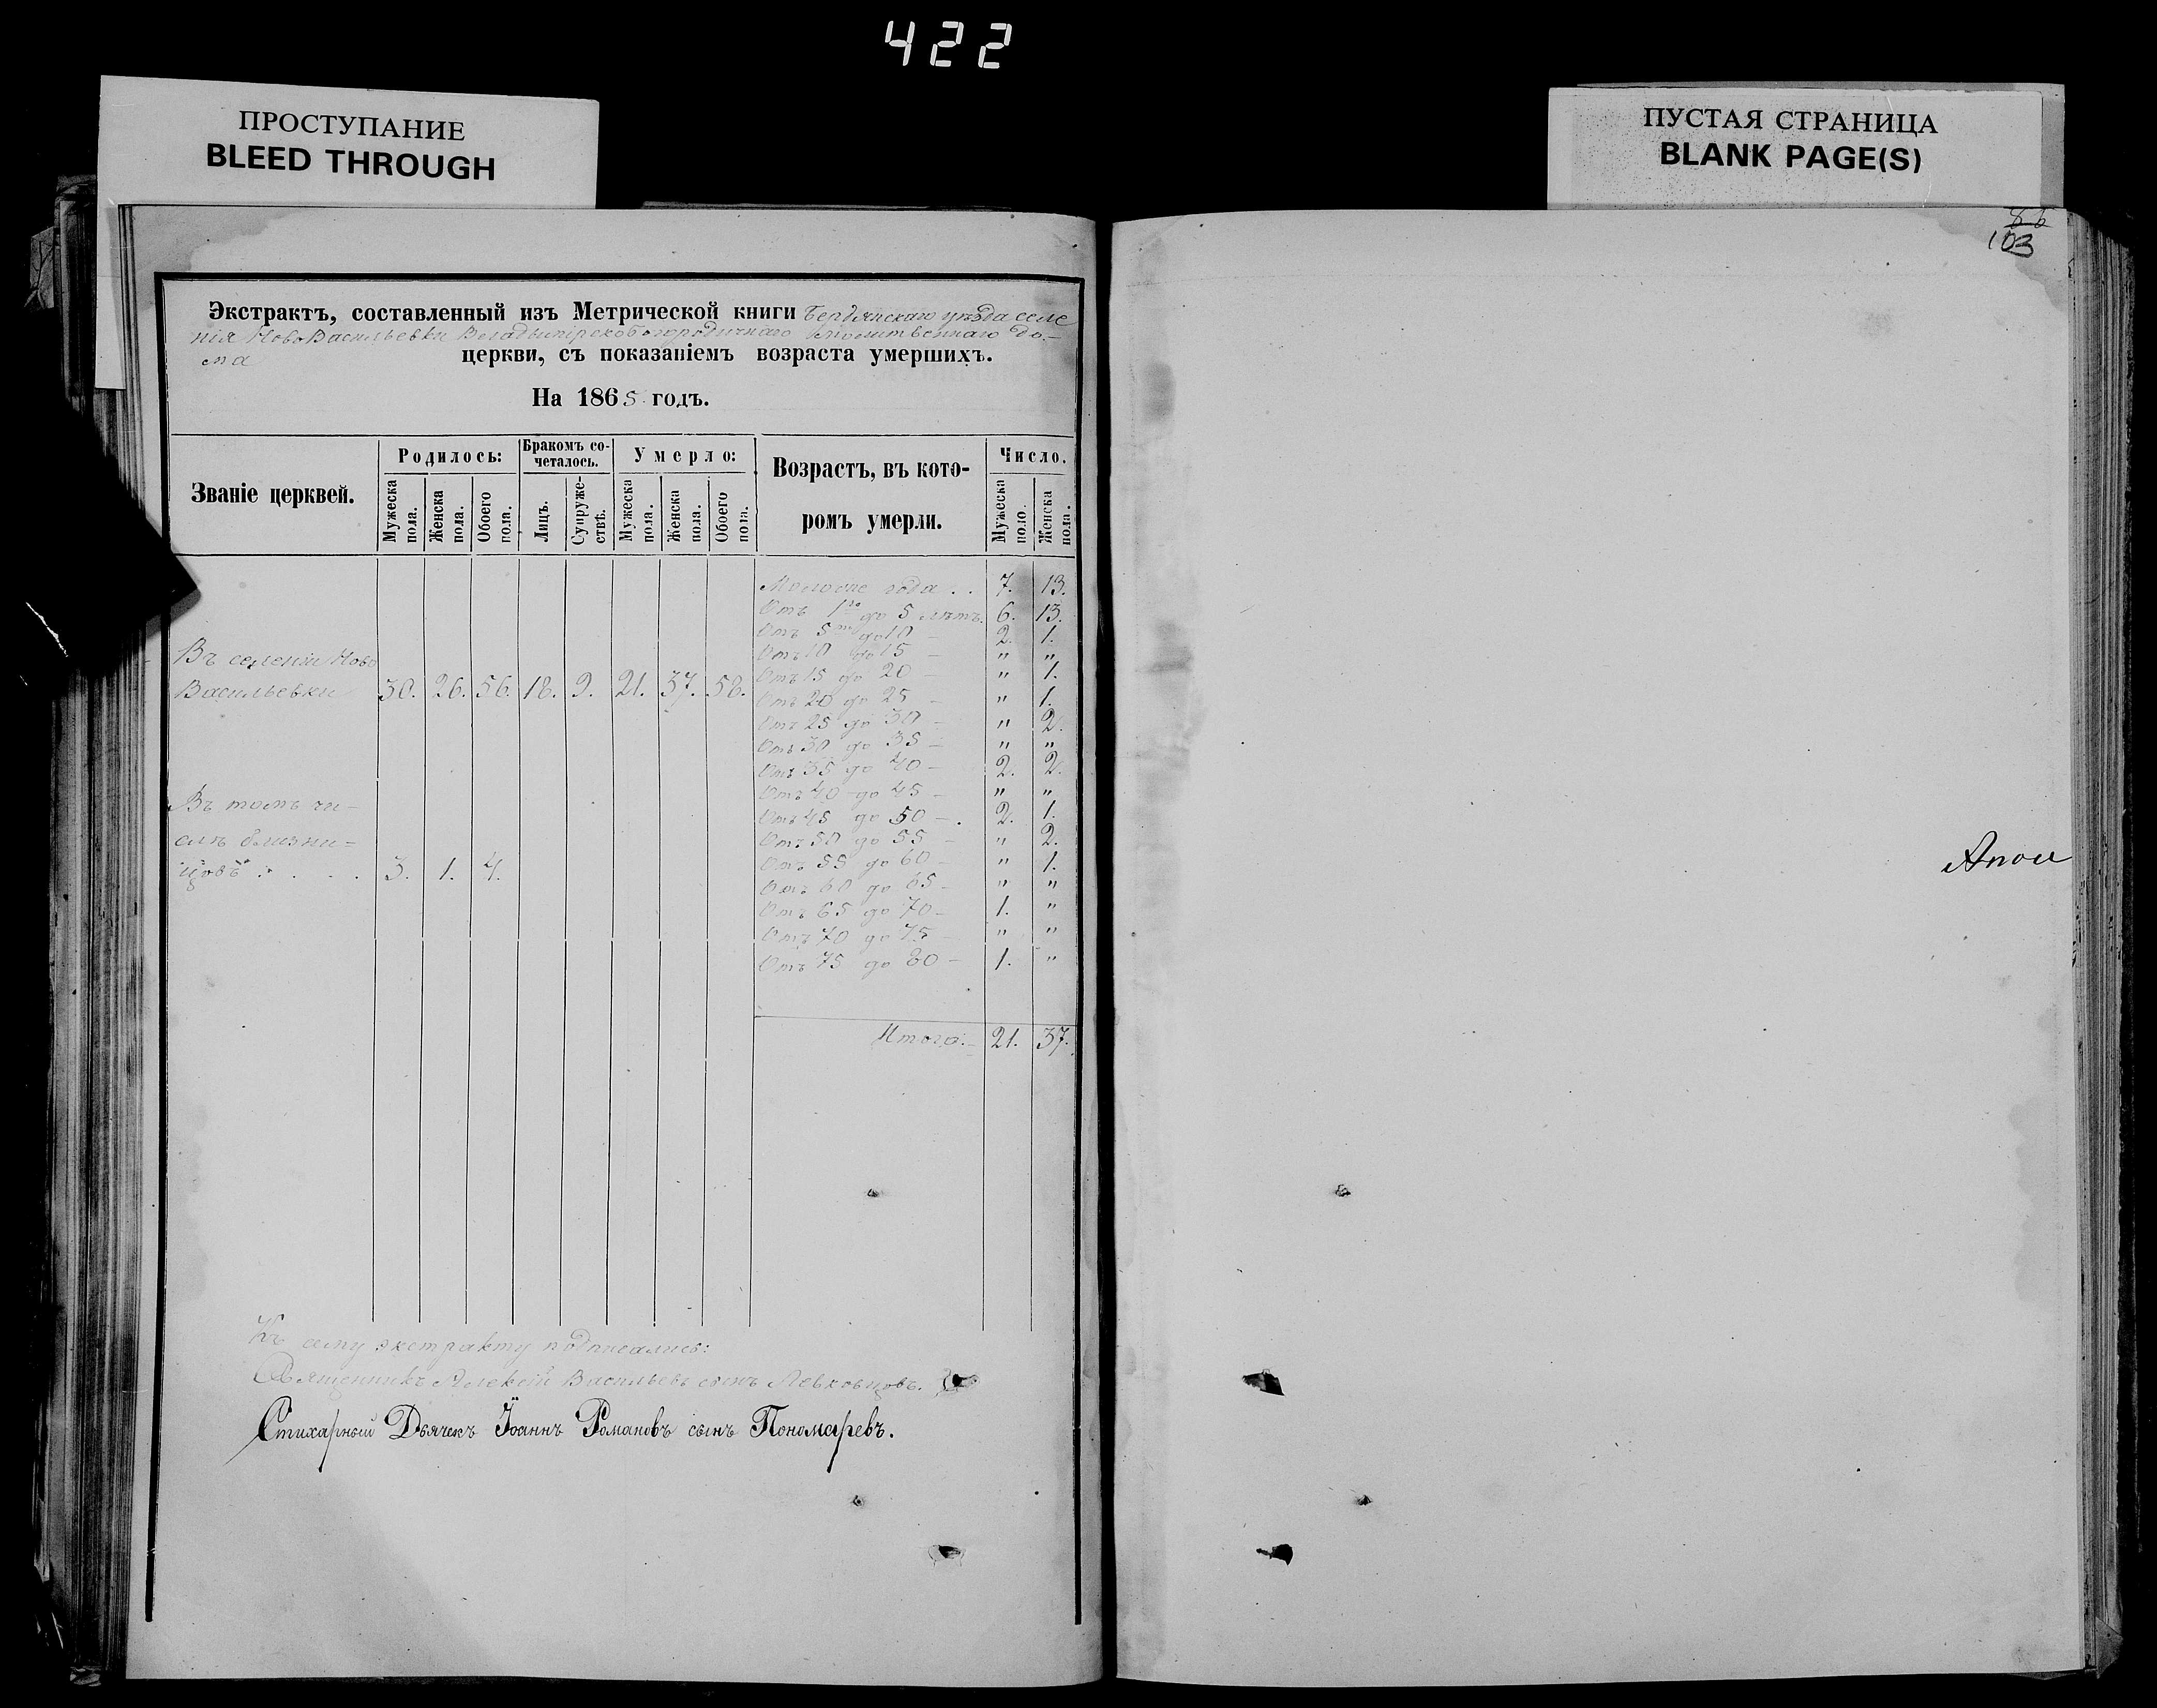 422
ПРОСТУПАНИЕ
BLEED THROUGH
ПУСТАЯ СТРАНИЦА
BLANK PAGE(S)
103
Экстрактъ, составленный изъ Метрической книги Бердянскаго уѣзда селе
нія НовоВасильевки Владимірскобогородичнаго молитвеннаго до-
ма церкви, съ показаніемъ возраста умершихъ.
На 1865 годъ.
Званіе церквей.
Родилось:
Бракомъ со-
четалось.
Умерло:
Возрастъ, въ кото-
ромъ умерли.
Число.
Мужеска пола.
Женска пола.
Обоего пола.
Лицъ.
Супружe-
ствѣ.
Мужеска пола.
Женска пола.
Обоего пола.
Мужеска поло.
Женска пола.
Моложе года . . 7. 13.
Отъ 1го до 5 лѣтъ. 6. 13.
Отъ 5ти до 10 – 2. 1.
Отъ 10 до 15 – " "
Отъ 15 до 20 – " 1.
Отъ 20 до 25 – " 1.
Отъ 25 до 30 – " 2.
Отъ 30 до 35 – " "
Отъ 35 до 40 – 2. 2.
Отъ 40 до 45 – " "
Отъ 45 до 50 – . 2. 1.
Отъ 50 до 55 – " 2.
Отъ 55 до 60 – " 1.
Отъ 60 до 65 – " "
Отъ 65 до 70 – 1. "
Отъ 70 до 75 – " "
Отъ 75 до 80 – 1. "
Итого. – 21. 37.
Въ селеніи Ново
Васильевки 30. 26. 56. 18. 9. 21. 37. 58.
Въ томъ чи-
слѣ близне-
цовъ . . . . 3. 1. 4.
Къ сему экстракту подписались:
Священникъ Алексій Васильевъ сынъ Левковцовъ.
Стихарный Дьячекъ Іоаннъ Романовъ сынъ Пономаревъ.